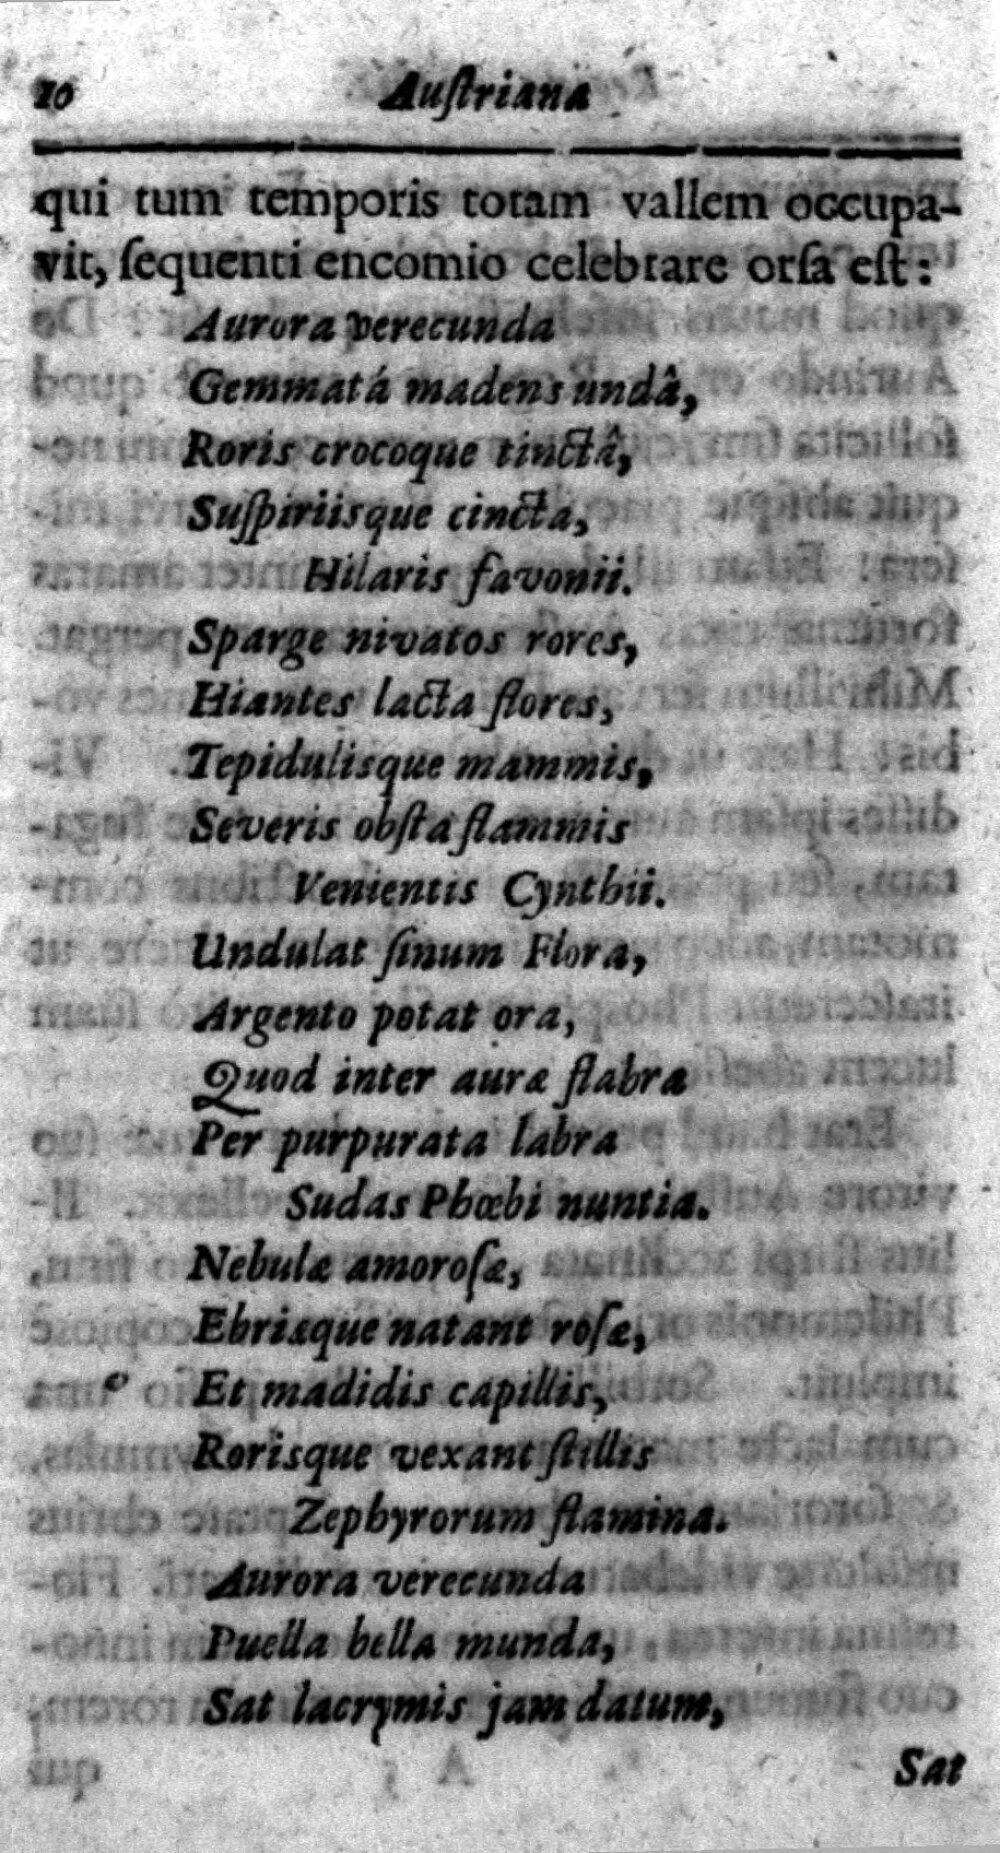 10 Auſtriana
qui tum temporis totam vallem occupa-
vit, ſequenti encomio celebrare orſa eſt:
Aurora verecunda
Gemmatá madens undâ,
Roris crocoque tinctâ,
Suſpiriisque cincta,
Hilaris favonii.
Sparge nivatos rores,
Hiantes lacta flores,
Tepidulisque mammis,
Severis obſta flammis
Venientis Cynthii.
Undulat ſinum Flora,
Argento potat ora,
Quod inter auræ flabra
Per purpurata labra
Sudas Phœbi nuntia.
Nebulæ amoroſæ,
Ebriæque natant roſæ,
Et madidis capillis,
Rorisque vexant ſtillis
Zephyrorum flamina.
Aurora verecunda
Puella bella munda,
Sat lacrymis jam datum,
Sat